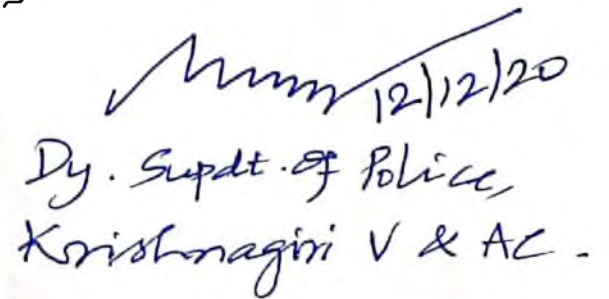 12/12/20
Dy. Supdt. of Police,
Krishnagiri V & AC.